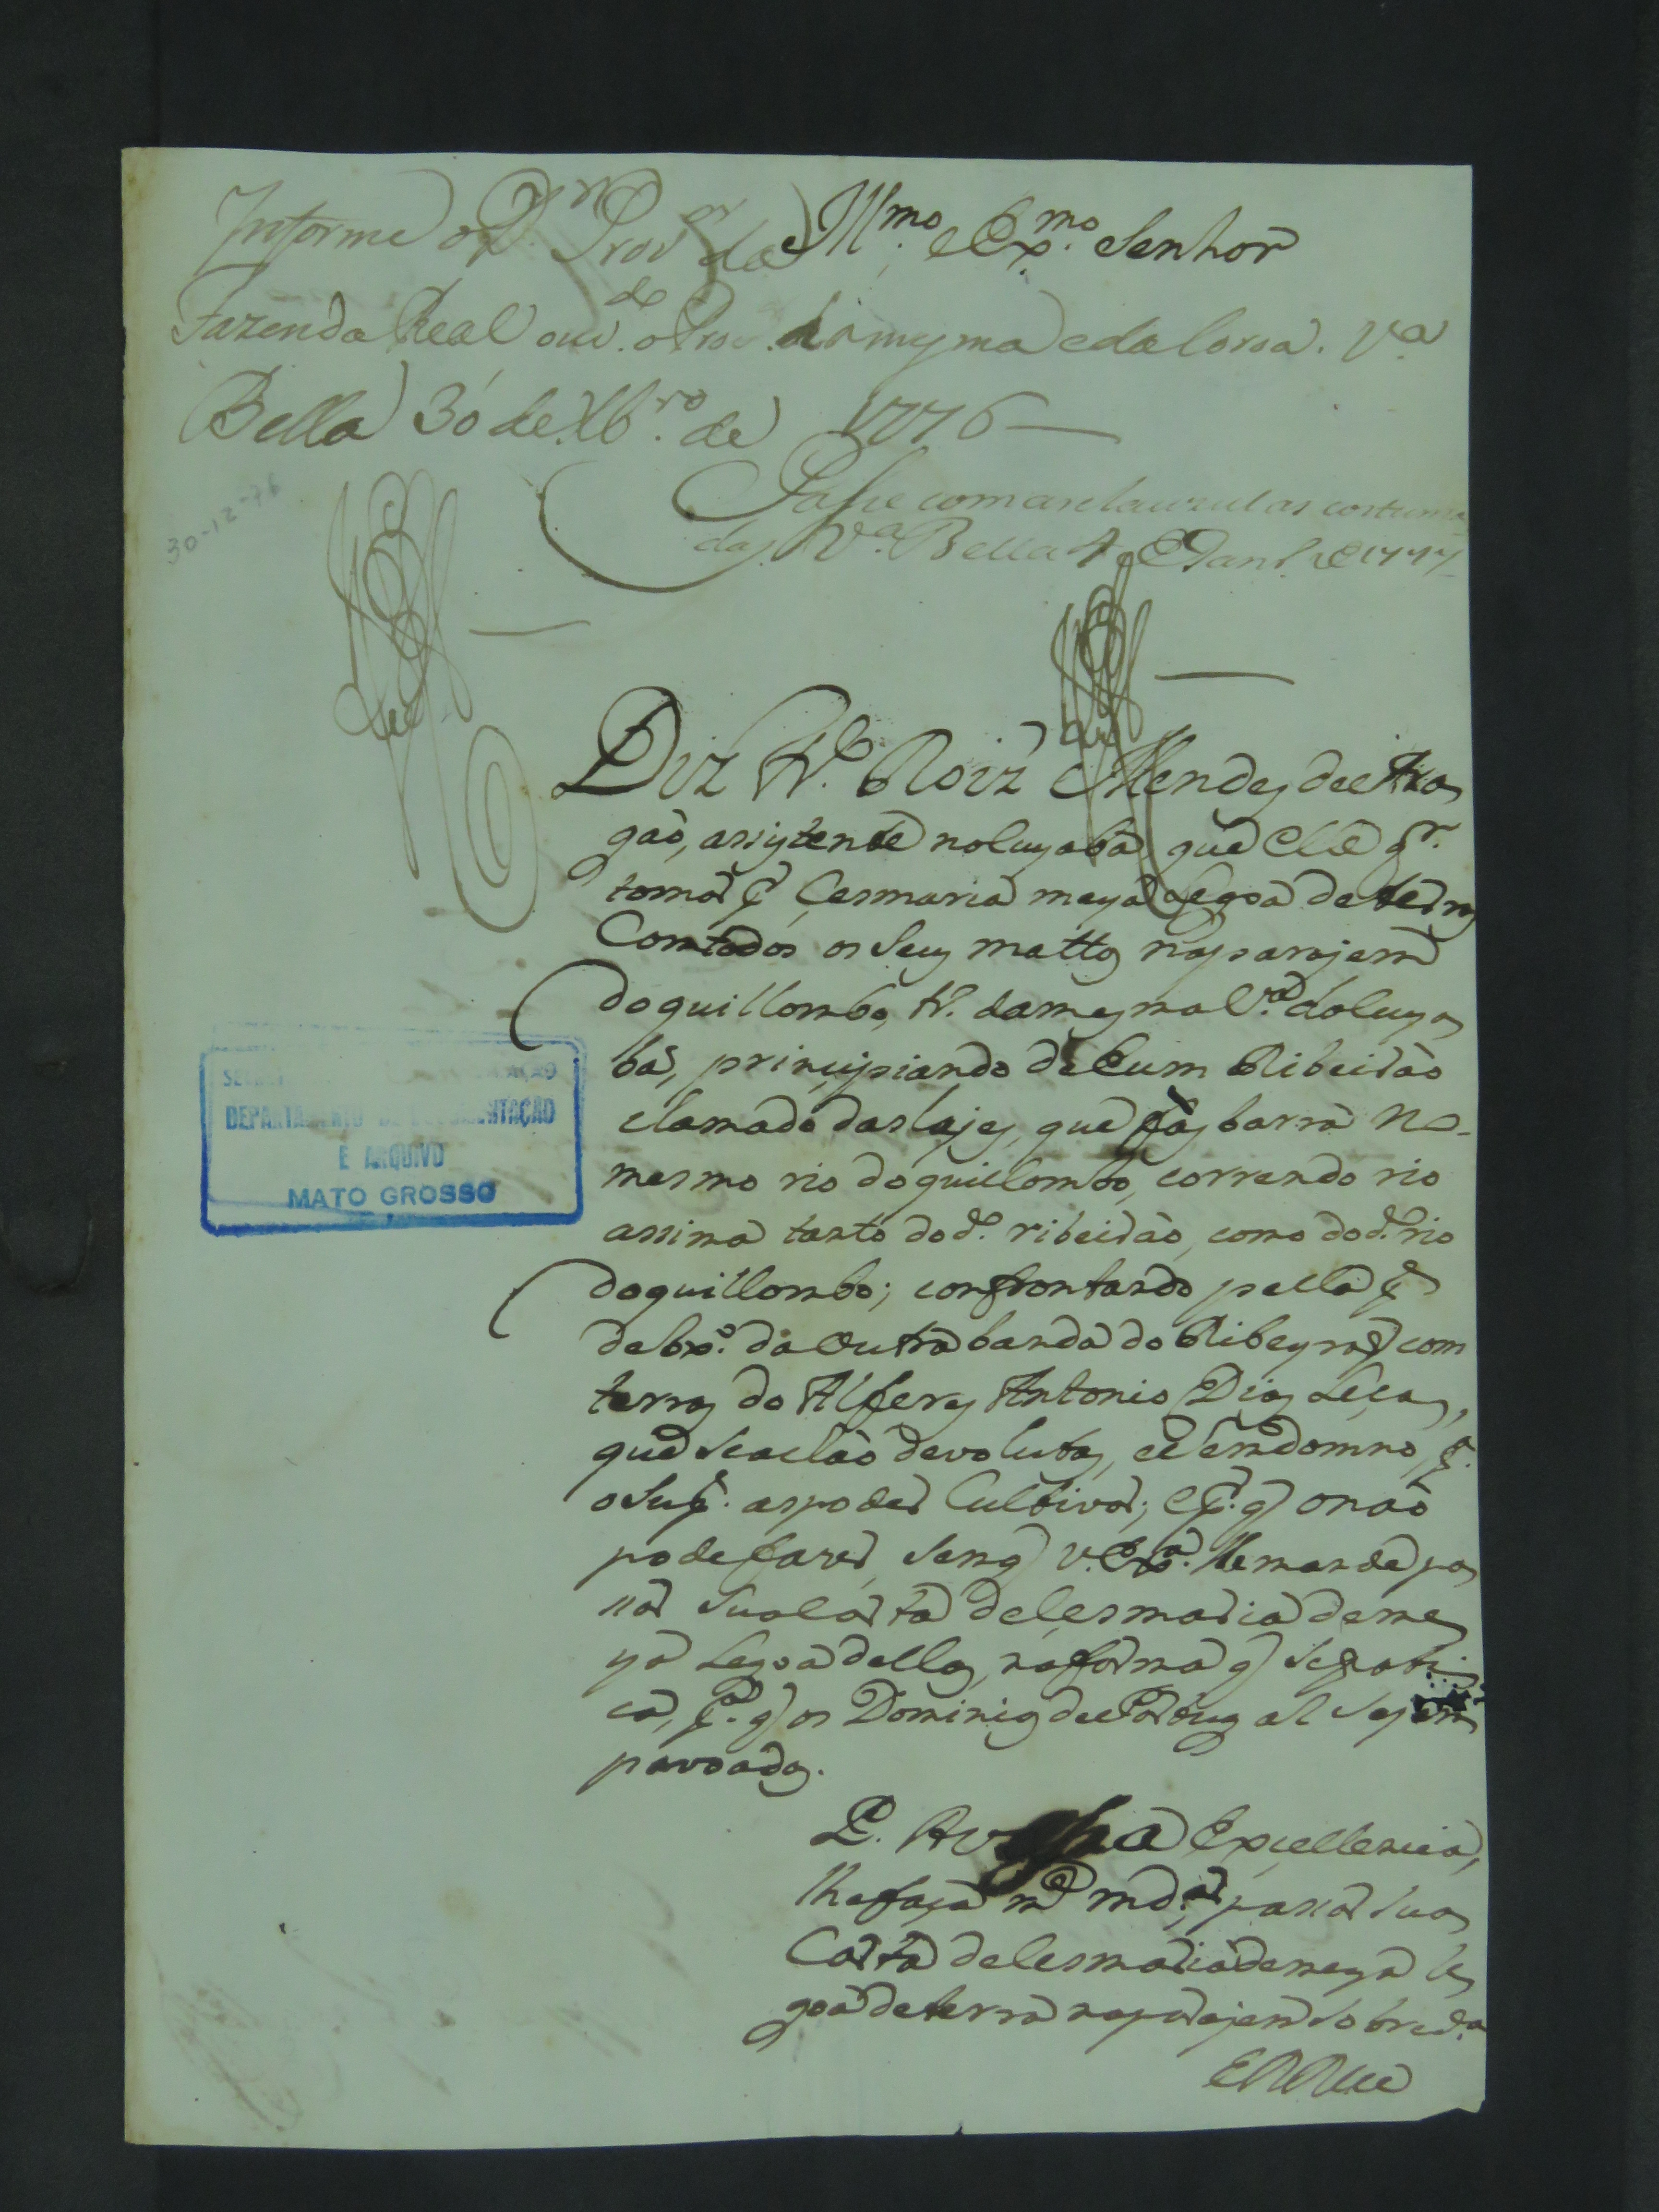 Illmo. e Exmo. Senhor
Informe o Dr. Provor da
Fazenda Real ouvdo. o Pror. da mesma e da Coroa. Va.
Bella 30 de Xbro. de 1776
Passe com as clauzulas costuma
das. Va. Bella 4 de Janro. de 1777
30-12-76
Diz Frco. Roiz Mendes de Ara
gaõ, assistente no Cuyabá, que elle qr.
tomar pr. Cesmaria meya Legoa de terras
Com todos os Seus mattos na parajem
do quillombo, tro. da mesma Va. do Cuya
bá, principiando de hum Ribeiraõ
chamado das lajes, que fás barra no
mesmo rio do quillombo, correndo rio
assima tanto do do. ribeiraõ, como do do. rio
do quillombo; confrontando pella pte.
debxo. da outra banda do Ribeyraõ com
terras do Alferes Antonio Dias Leça,
que se achaõ devolutas, e Sem domno, pa.
o Supe. as poder Cultivar; e pr. q o naõ
pode fazer, Sem q V. Exa. lhe mande pas
sar Sua Carta de Cesmaria de me
ya Legoa dellas, na forma q se prati
ca, pa. q os Dominios de Portugal Sejam
povoados.
P. A Vossa Excellencia,
lhe faça me. mdar. passar Sua
Carta de Cesmaria de meya le
goa de terra na parajem sobreda.
E R Mce
DEPARTAMENTO DE DOCUMENTAÇÃO
E ARQUIVO
MATO GROSSO